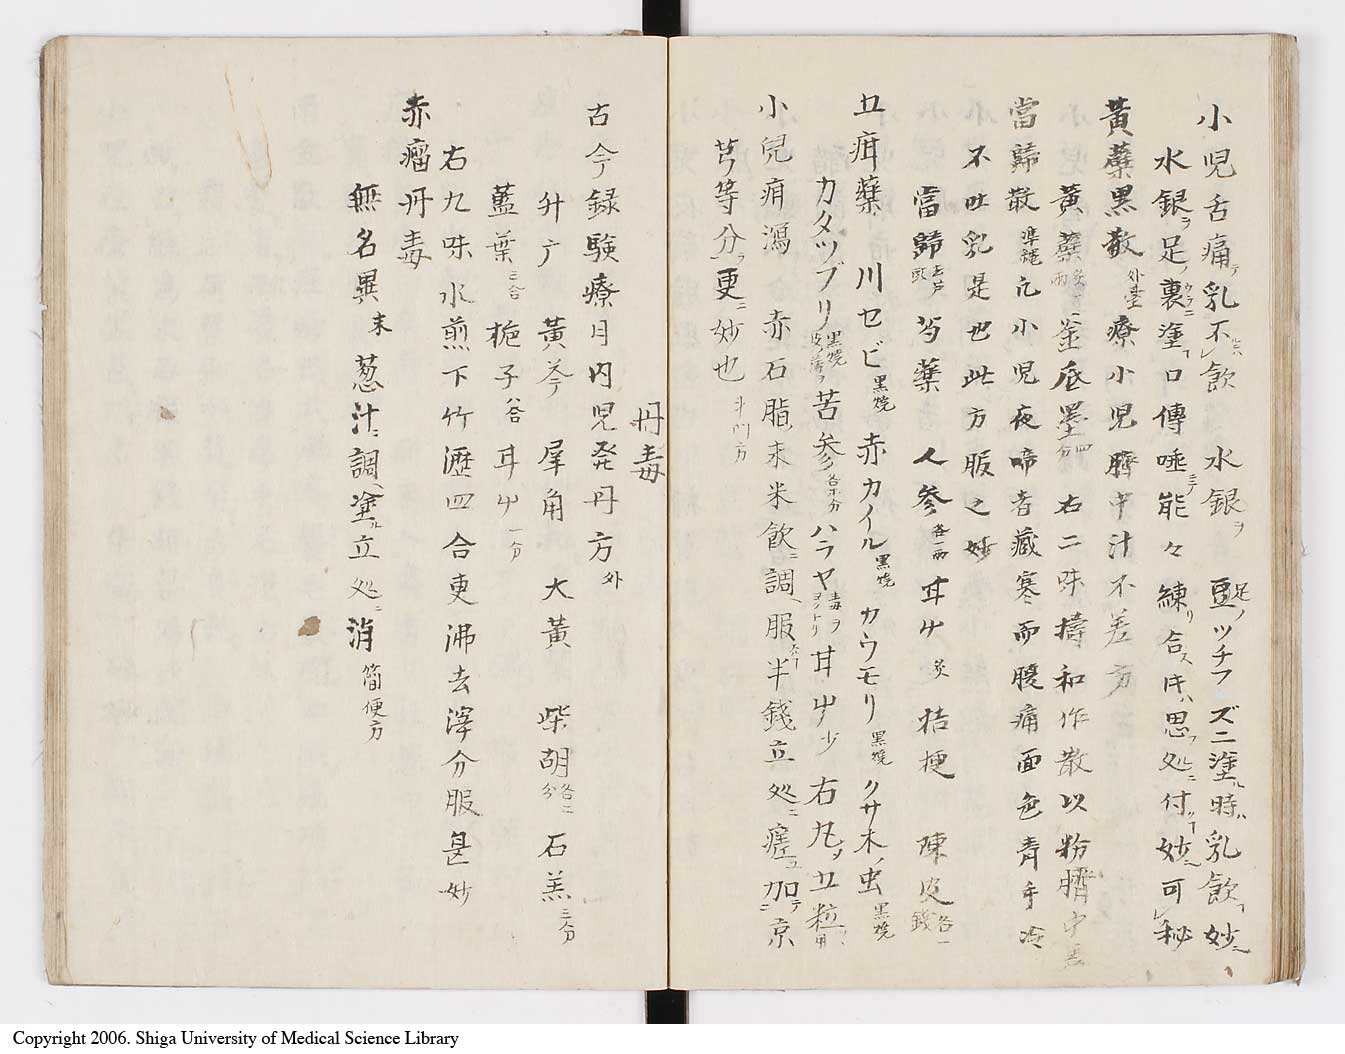 小児舌痛テ乳不飲 水銀ヲ足ノツチフズニ塗ル時ハ乳飲フ妙ニ
水銀ヲ足ノ裏ニ塗フ口傳唾ニテ能々練リ合スル片ハ思フ処ニ付フ妙ニ可秘
黄蘗黒散 外臺 療小児臍中汁不差方
黄蘗 炙一兩 釜底墨 四分 右二味擣和作散以粉臍中差
當歸散 準繩 凢小児夜啼者藏寒而腹痛面色青手冷
不吐乳是也此方服之妙
當歸 去芦頭 芍薬 人參 各一兩 耳艸 炙 桔梗 陳皮 各一錢
五疳藥 川セビ 黒焼 赤カイル 黒焼 カウモリ 黒焼 クサ木ノ虫 黒焼
カタツブリ 黒焼 苦參 各等分 ハラヤ 毒ヲヨクトリ 甘艸少 右丸ヲ五粒用
小兒疳瀉 赤石脂末米飲ニ調ヘ服半錢立処ニ瘥ユ加テニ京
芎等分ヲ更ニ妙也 斗門方
丹毒
古今録験療月内児発丹方 外
升广 黄芩 犀角 大黄 柴胡 各二分 石羔 三分
藍葉 三合 栀子 八合 耳艸 一分
右九味水煎下竹瀝四合更沸去滓分服甚妙
赤瘤丹毒
無名異 末 葱汁ニ調ヘ塗ル立処ニ消 簡便方
Copyright 2006. Shiga University of Medical Science Library